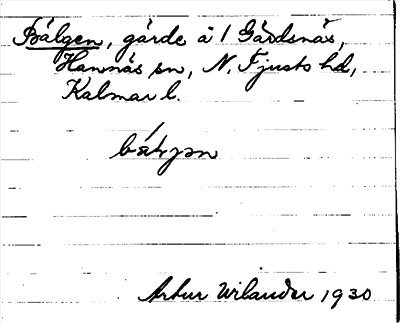 Bälgen, gärde ä 1 Gärdsnäs,
Hannäs sn, N. Tjusts hd,
Kalmar l.
Artur Wilander 1930